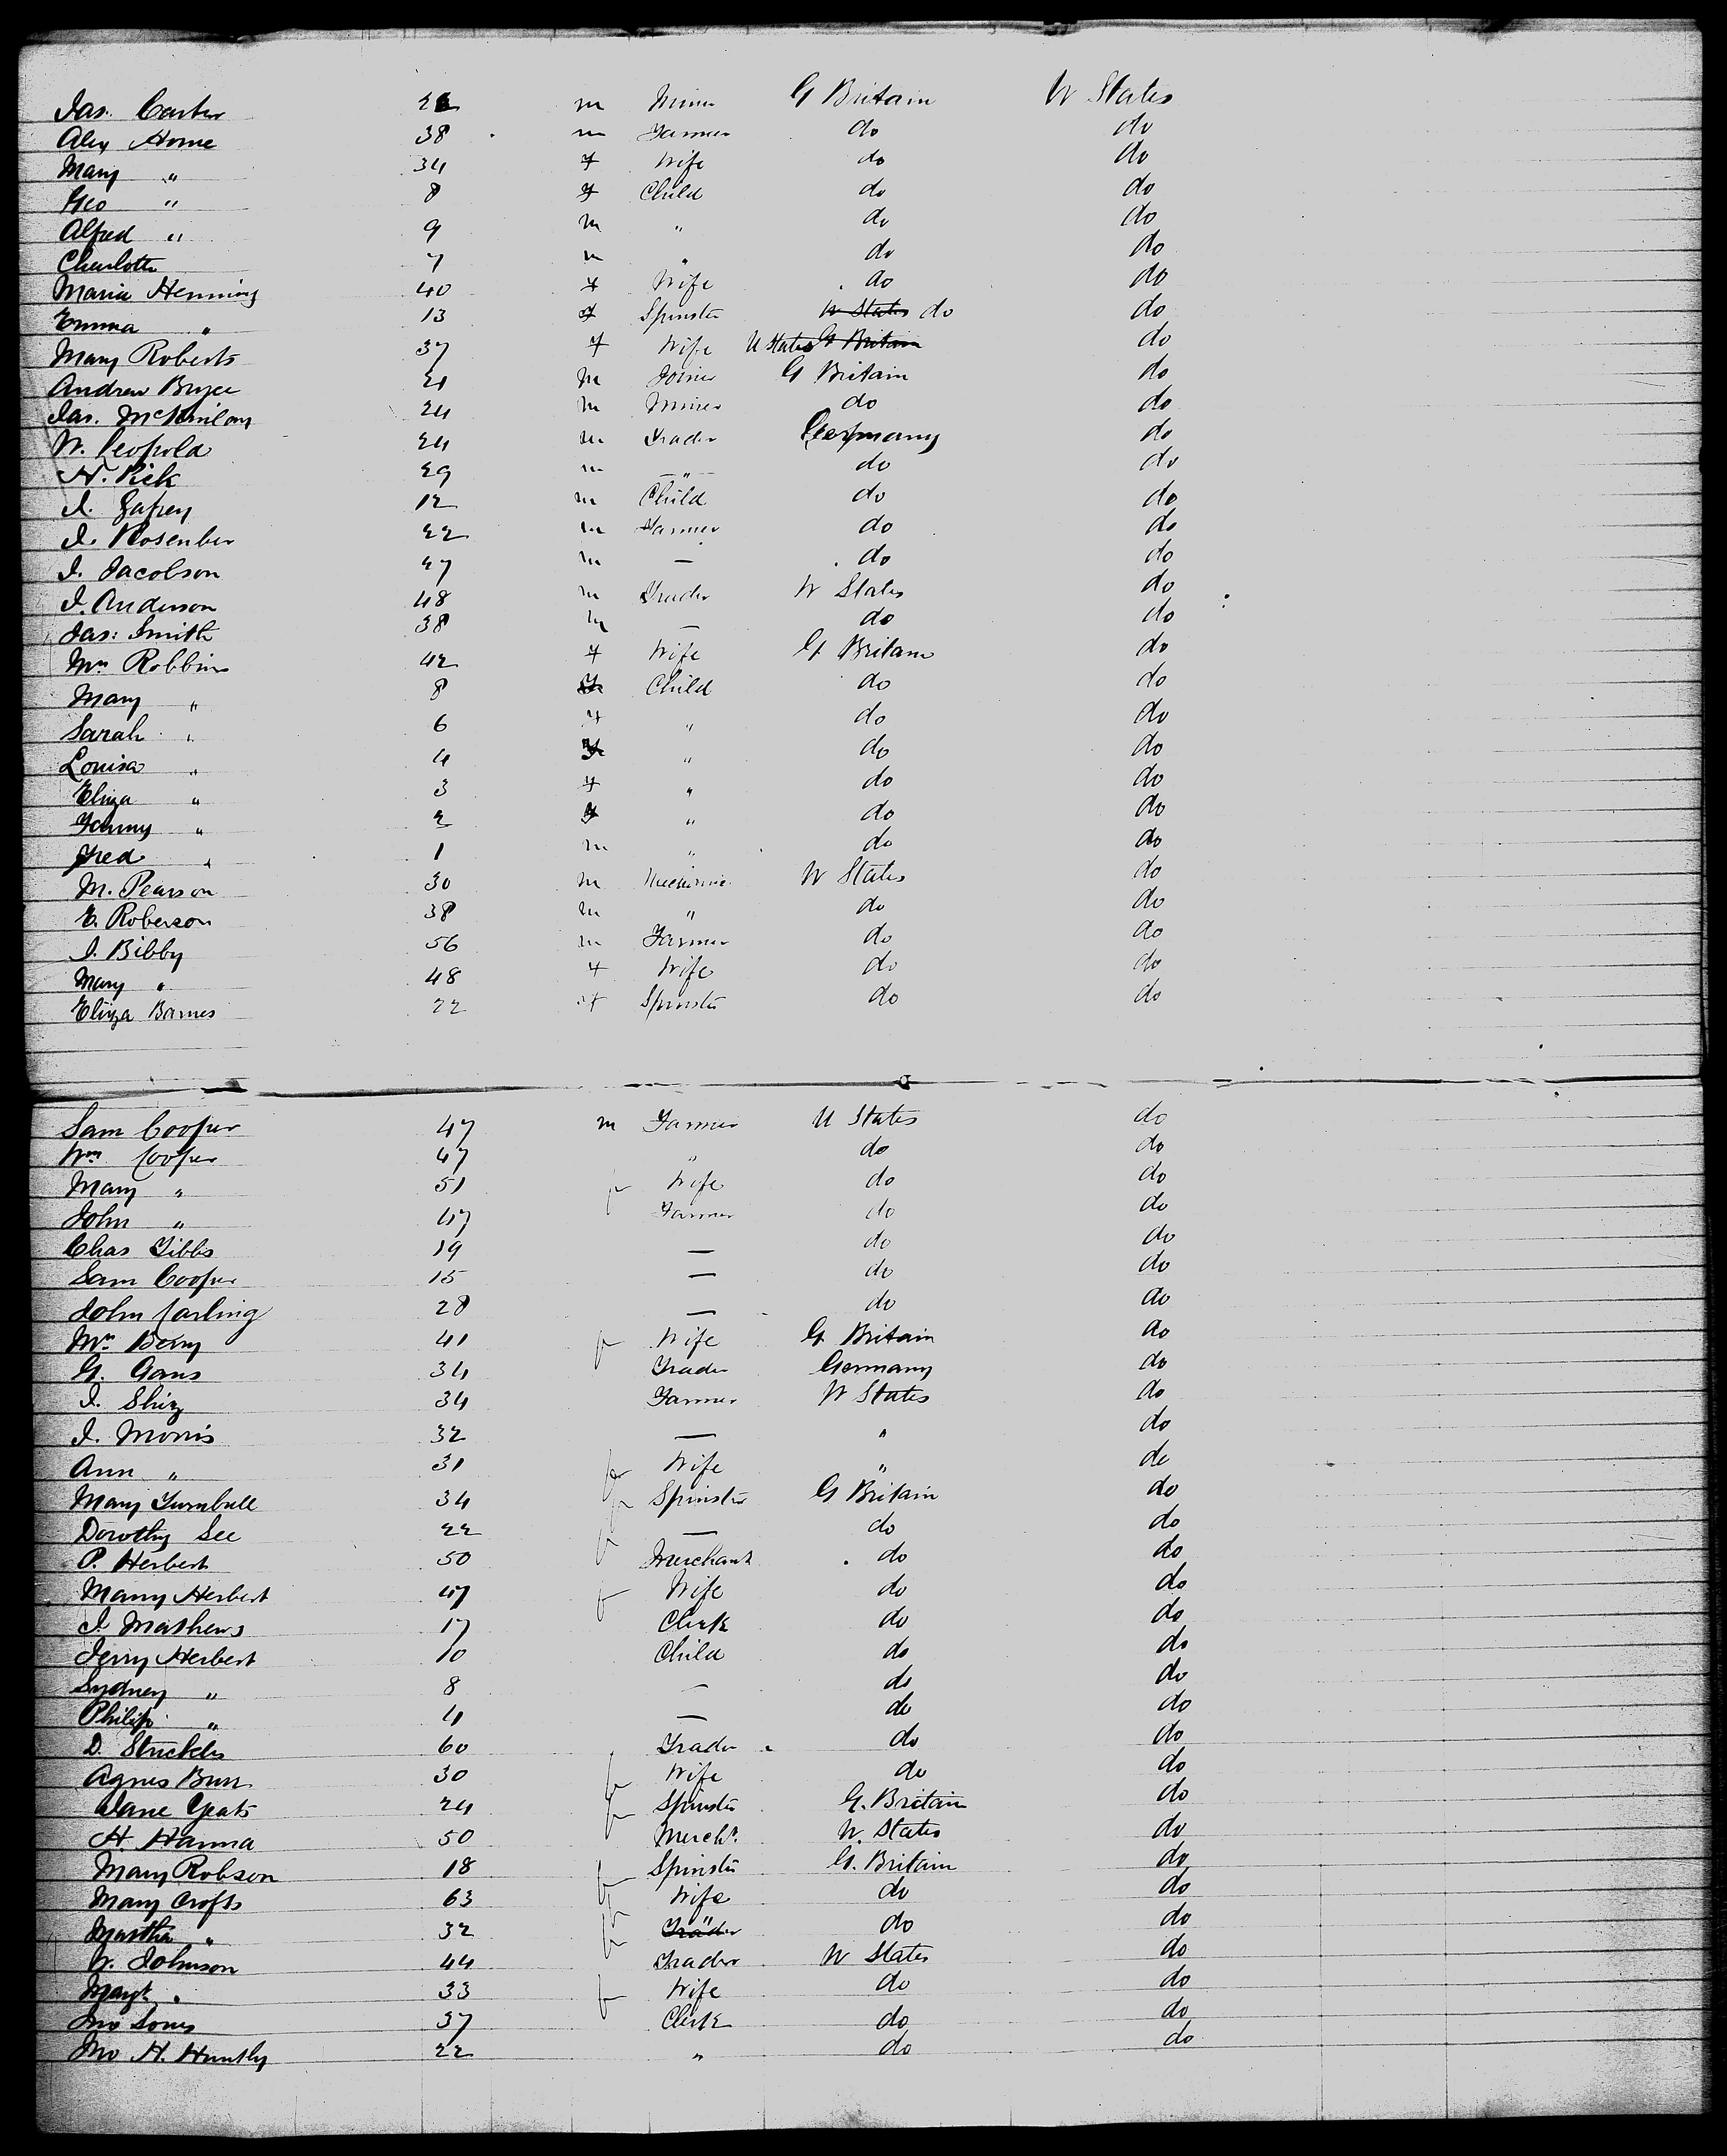 Jas. Carter m Miner G Britain U States
Alex Horne 38 m Farmer do do
Mary " 34 f Wife do do
Geo " 8 f Child do do
Alfred " 9 m " do do
Charlotte 7 m " do do
Maria Henning 40 f Wife do do
Emma " 13 f Spinster U States do do
Mary Roberts 37 f Wife U States G Britain do
Andrew Bryce 21 m Joiner G Britain do
Jas. 24 m Miner do do
W. Leopold 24 m Trader Germany do
H. Pick 29 m " do do
I. 12 m Child do do
I. Rosenber 22 m Farmer do do
I. Jacobson 27 m — do do
I. Anderson 48 m Trader U States do
Jas: Smith 38 m — do do
Mrs Robbins 42 f Wife G Britain do
Mary " 8 f Child do do
Sarah " 6 f " do do
Louisa " 4 f " do do
Eliza " 3 f " do do
Fanny " 2 f " do do
Fred " 1 m " do do
M. Pearson 30 m Mechanic U States do
E. Roberson 38 m " do do
I. Bibby 56 m Farmer do do
Mary " 48 f Wife do do
Eliza Barnes 22 f Spinster do do
Sam Cooper 47 m Farmer U States do
Wm Cooper 47 " do do
Mary " 51 f Wife do do
John " 47 Farmer do do
Chas Tibbs 19 — do do
Sam Cooper 15 — do do
John Carling 28 — do do
Mrs Berry 41 f Wife G Britain do
G. Gans 34 Trader Germany do
I. 34 Farmer U States do
I. Morris 32 — " do
Ann " 31 f Wife " do
Mary Turnbull 34 f Spinster G Britain do
Dorothy Lee 22 f — do do
P. Herbert 50 Merchant do do
Mary Herbert 47 f Wife do do
I. Mathews 17 Clerk do do
Jerry Herbert 10 Child do do
Sydney " 8 — do do
Philip " 4 — do do
D. Strickles 60 Trader do do
Agnes Burr 30 f Wife do do
Jane Yeats 24 f Spinster G. Britain do
H. Hanna 50 Mercht. U. States do
Mary Robson 18 f Spinster G. Britain do
Mary Crofts 63 f Wife do do
Martha " 32 f Trader " do do
W. Johnson 44 Trader U States do
Margt " 33 f Wife do do
Jno 37 Clerk do do
Jno H. Huntly 22 " do do